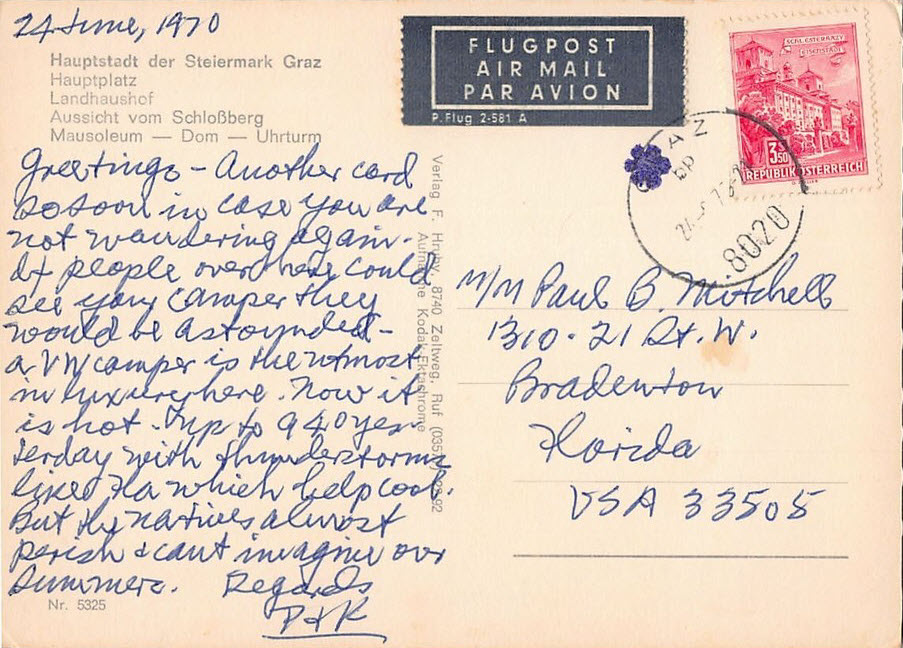 24 June, 1970
Hauptstadt der Steiermark Graz
Hauptplatz
Landhaushof
Aussicht vom Schloßberg
Mausoleum — Dom — Uhrturm
Greetings - Another card
so soon in case you are
not wandering again.
If people over here could
see your camper they
would be astounded -
a VW camper is the utmost
in luxury here. Now it
is hot. Up to 94° yes-
terday with thunderstorms
like Fla which help cool.
But the natives almost
perish & cant imagine our
summers. Regards
P & K
Nr. 5325
Verlag F. Hruby, 8740 Zeltweg, Ruf
Aufnahme Kodak-Ektachrome
FLUGPOST
AIR MAIL
PAR AVION
P. Flug 2-581 A
SCHL. ESTERHAZY
EISENSTADT
3 S
50
REPUBLIK ÖSTERREICH
AZ
8020
M/M Paul B. Mitchell
1310 - 21 St. W.
Bradenton
Florida
USA 33505